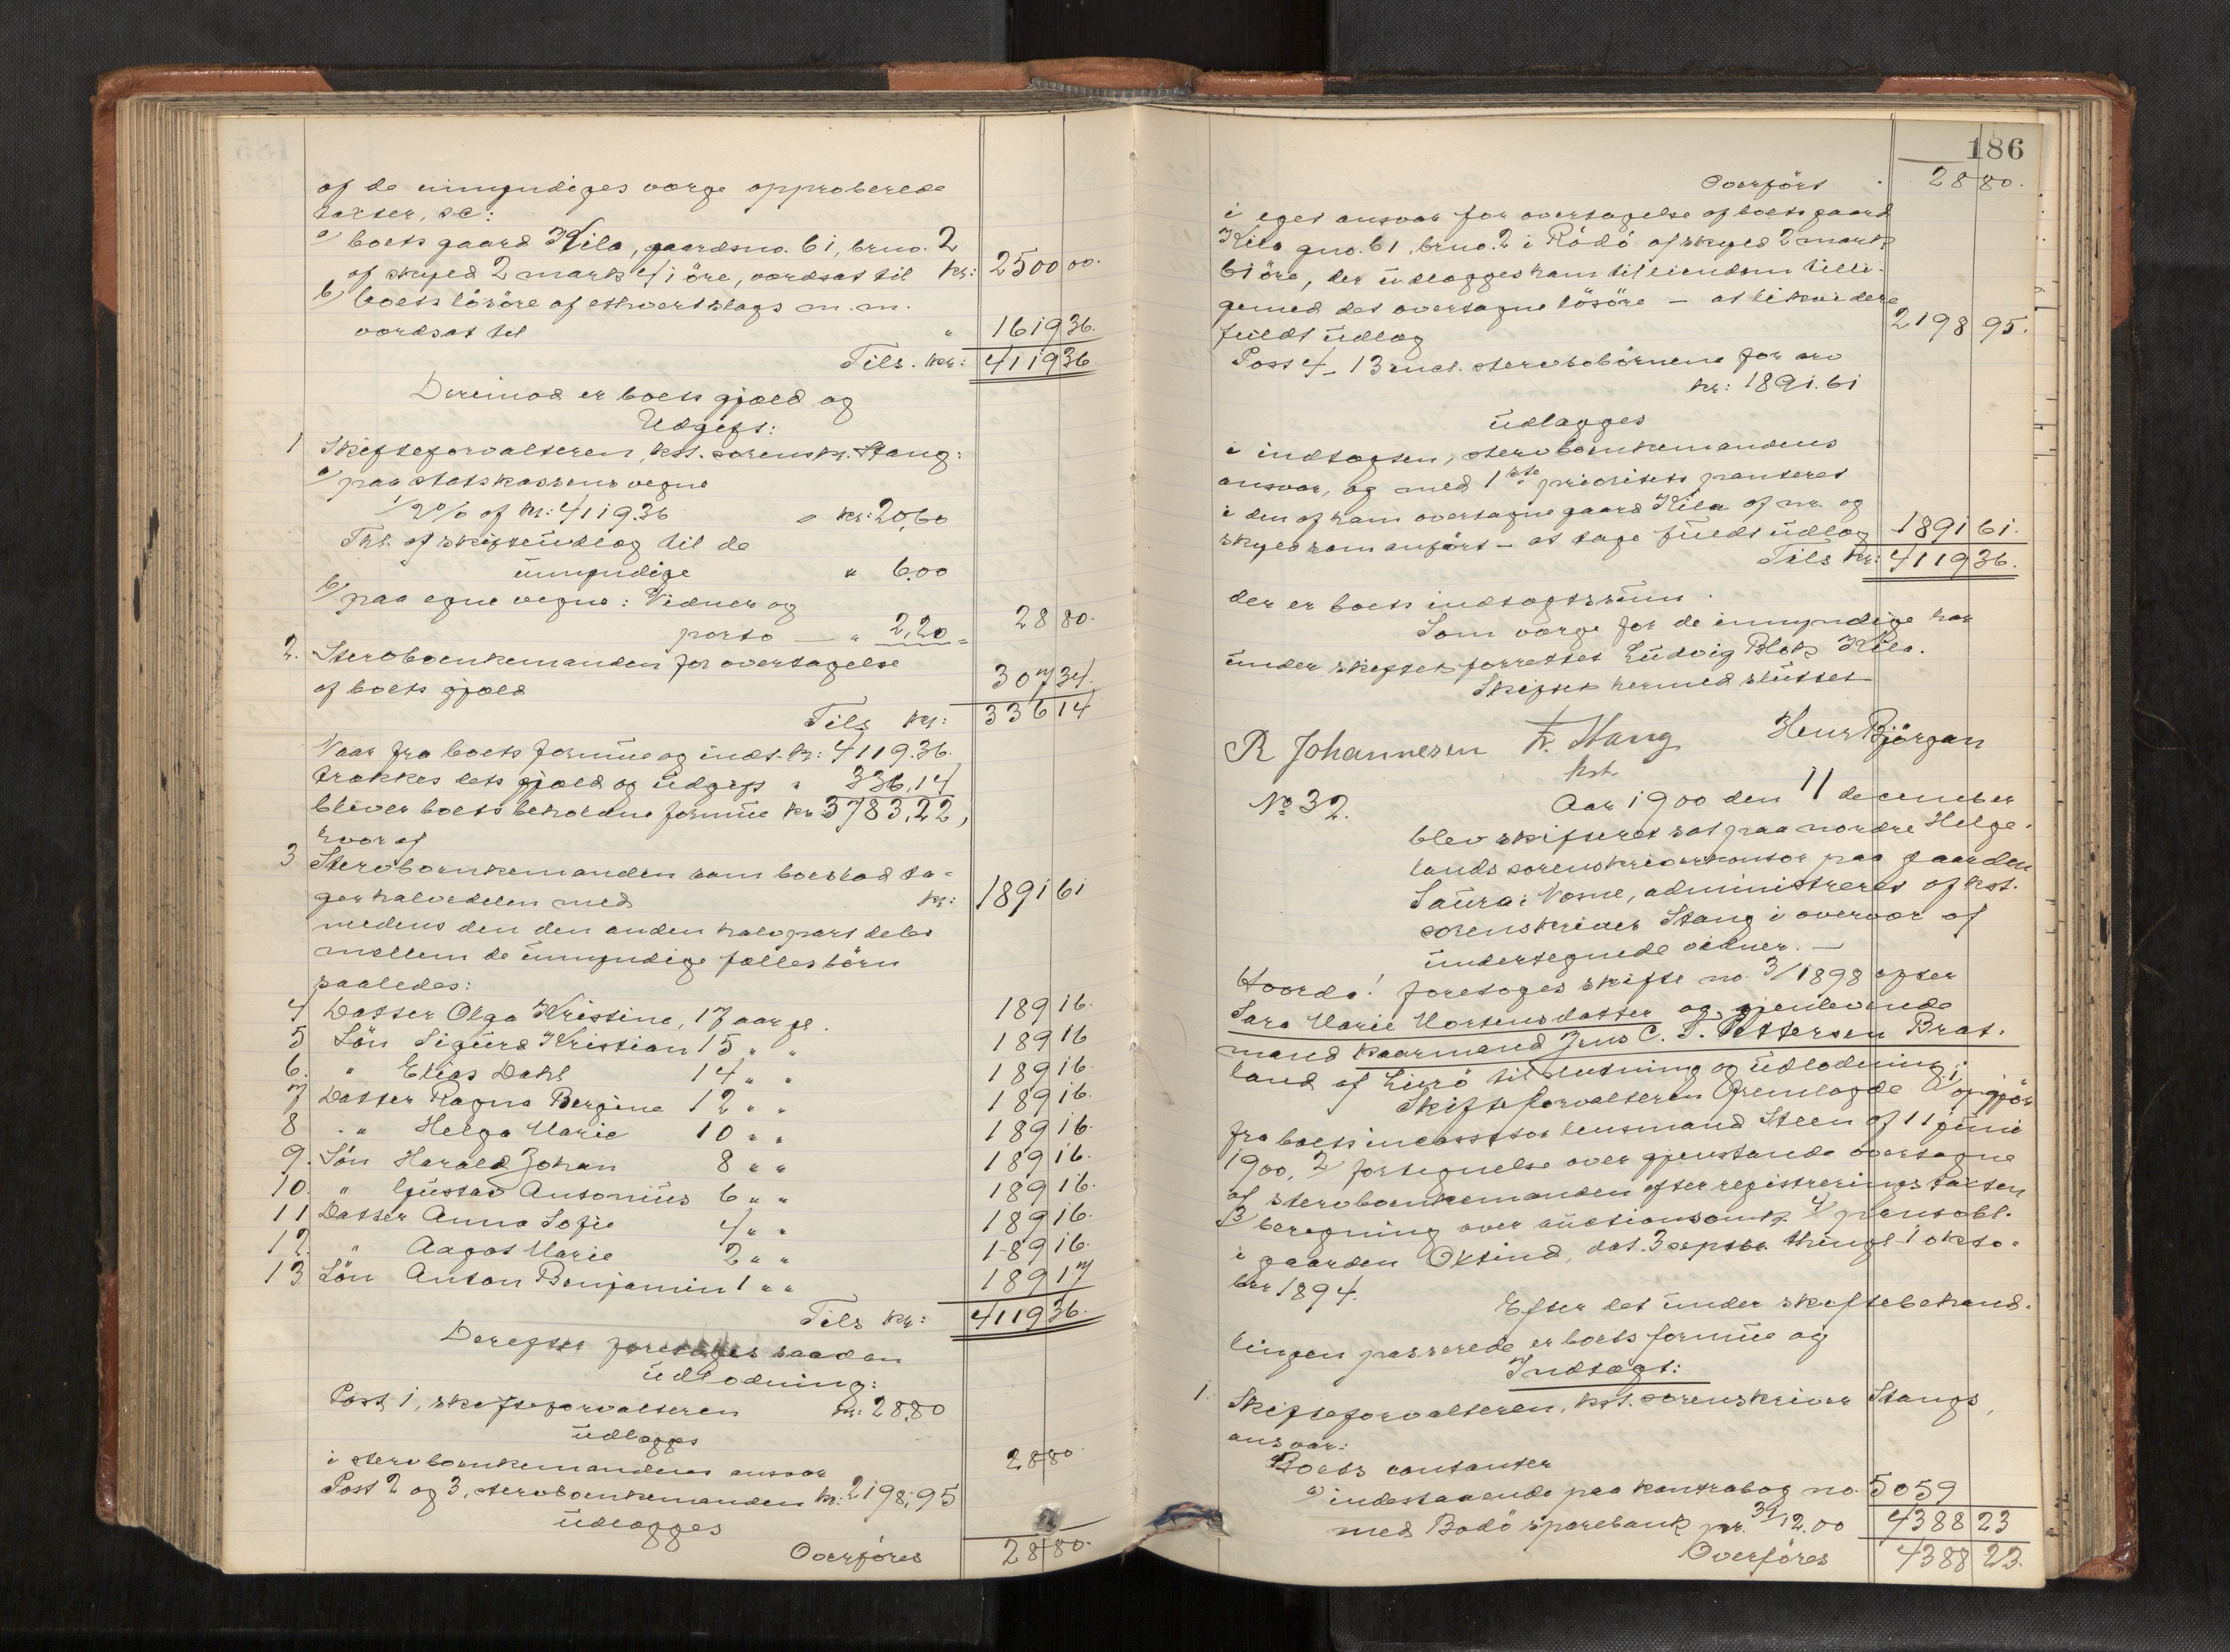 af de umyndiges værge approberede
taxter, sc:
a) boets gaard Kila, gaardsno. 61, brno. 2
af skyld 2 mark 41 öre, værdsat til kr: 2500 00.
b) boets lösöre af ethvert slags m. m.
værdsat til " 1619 36.
Tils. kr: 4119 36
Derimod er boets gjæld og
Udgift:
1 Skifteforvalteren, kst. sorenskr. Stang:
a) paa statskassens vegne
1/2 % af kr: 4119.36 " kr: 20,60
Thl. af skifteudlæg til de
umyndige " 6.00
b) paa egne vegne: Vidner og
porto — " 2,20 = 28 80.
2. Stervboenkemanden for overtagelse
af boets gjæld 307 34.
Tils kr: 336 14
Naar fra boets formue og indt. kr: 4119.36.
trækkes dets gjæld og udgift " 336,14
bliver boets beholdne formue kr: 3783,22,
hvoraf
3 Stervboenkemanden som boeslod ta-
ger halvdelen med kr: 1891 61
medens den den anden halvpart deles
mellem de umyndige fællesbörn
saaledes:
4 Datter Olga Kristine, 17 aar gl. 189 16.
5 Sön Sigurd Kristian 15 " " 189 16
6. " Elias Dahl 14 " " 189 16.
7 Datter Ragna Bergine 12 " " 189 16.
8 " Helga Marie 10 " " 189 16.
9. Sön Harald Johan 8 " " 189 16.
10. " Gustav Antonius 6 " " 189 16.
11 Datter Anna Sofie 4 " " 189 16.
12. " Aagot Marie 2 " " 189 16.
13 Sön Anton Benjamin 1 " " 189 17
Tils kr: 4119 36.
Derefter foretages saadan
udlodning:
Post 1, skifteforvalteren kr: 28.80
udlægges
i stervboenkemandens ansvar 28 80
Post 2 og 3, stervboenkemanden kr: 2198,95
udlægges
Overföres 28 80.
186
Overfört 28 80.
i eget ansvar for overtagelse af boets gaard
Kila gno. 61, brno. 2 i Rödö af skyld 2 mark
61 öre, der udlægges ham til eiendom tilli-
gemed det overtagne lösöre — at likvidere
fuldt udlæg 2198 95.
Post 4 - 13 incl. stervbobörnene for arv
kr: 1891.61
udlægges
i indtægten, stervboenkemandens
ansvar, og med 1ste prioritets panteret
i den af ham overtagne gaard Kila af nr. og
skyld som anfört — at tage fuldt udlæg 1891 61.
Tils kr: 4119 36.
der er boets indtægtssum.
Som værge for de umyndige har
under skiftet forrettet Ludvig Blok Kila.
Skiftet hermed sluttet
R Johannesen Fr. Stang Henr Bjørgan
kst.
No 32. Aar 1900 den 11 december
blev skifteret sat paa nordre Helge-
lands sorenskriverkontor paa gaarden
Saura i Nesne, administreret af kst.
sorenskriver Stang i overvær af
undertegnede vidner. —
Hvorda! foretoges skifte no. 3/1898 efter
Sara Marie Mortensdatter og gjenlevende
mand kaarmand Jens C. T. Pettersen Brat-
land af Lurö til slutning og udlodning.
Skifteforvalteren fremlagde 1) opgjör
fra boets incassator lensmand Steen af 11 juni
1900, 2) fortegnelse over gjenstande overtagne
af stervboenkemanden efter registreringstaxten
3) beregning over auctionsomk. 4) pantobl.
i gaarden Oktind, dat. 3 septbr. thingl 1 okto-
ber 1894.
Efter det under skiftebehand-
lingen passerede er boets formue og
Indtægt:
1. Skifteforvalteren, kst. sorenskriver Stangs
ansvar:
Boets contanter
a) indestaaende paa kontrabog no. 5059
med Bodö sparebank pr. 31/12.00 4388 23
Overföres 4388 23.